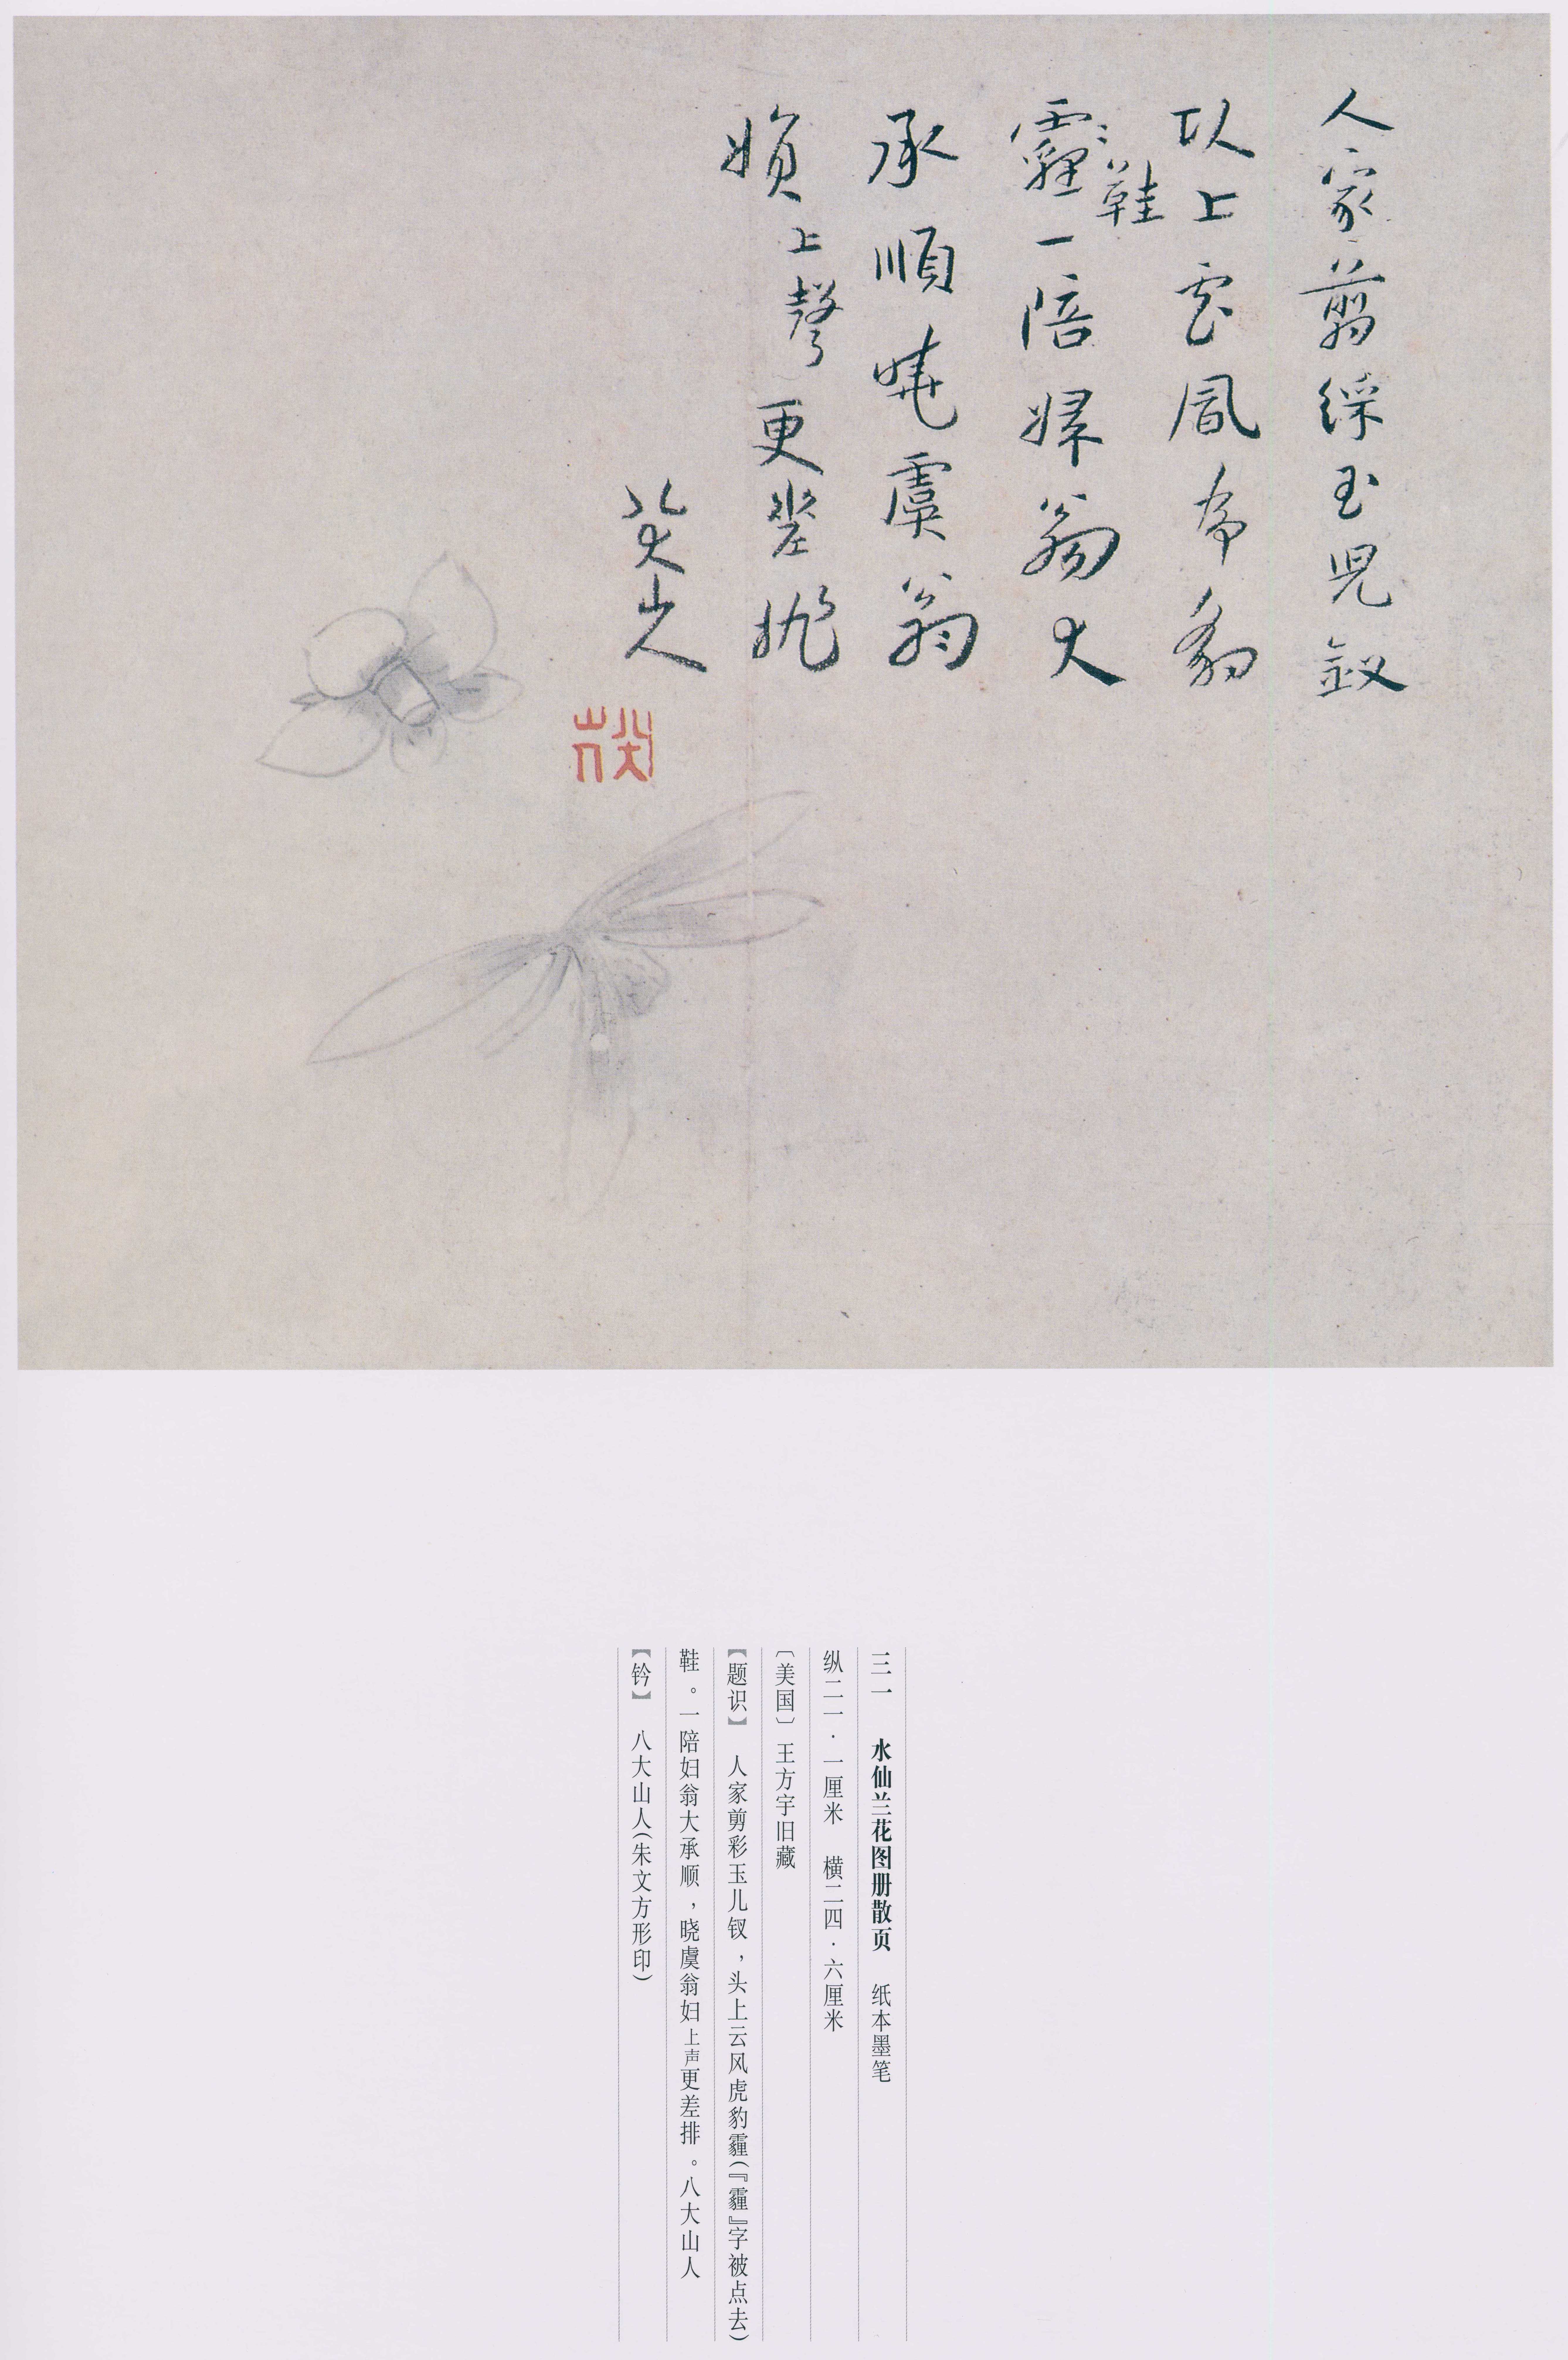 人家翦綵玉兒釵
以上雲風虎豹
霾鞋一陪婦翁大
承順曉虞翁
上聲更差排
八大山人
八大山人
三一 水仙兰花图册散页 纸本墨笔
纵二一·一厘米 横二四·六厘米
〔美国〕王方宇旧藏
【题识】 人家剪彩玉儿钗，头上云风虎豹霾(『霾』字被点去)
鞋。一陪妇翁大承顺，晓虞翁妇上声更差排。八大山人
【钤】 八大山人(朱文方形印)